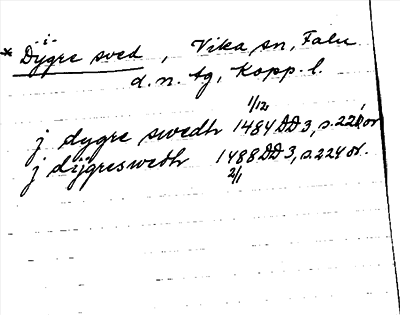 -i-
* Dygre sved, Vika sn, Falu
d. n. tg, Kopp. l.
1/12
j dygre swedh 1484 DD 3, s. 221 or.
j dijgreswedh 1488 DD 3, s. 224 or.
2/1